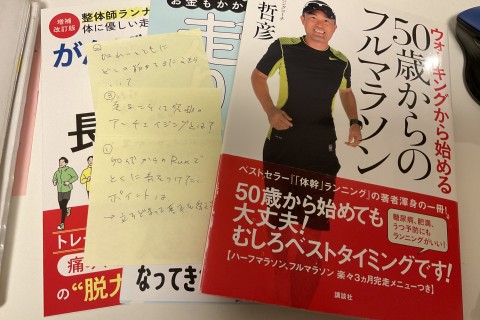 増補
改訂版
整体師ランナ
体に優しい走
が
長
トレ
痛
の"脱力
お金もかか
走
なってき
②
③
走ることは究極の
アンチエイジングとは?
50歳からのRunで
とくに気をつけたい
ポイントは
ランニングコーチ
哲彦
ウォーキングから始める
50歳からの
フルマラソン
ベストセラー『「体幹」ランニング』の著者渾身の一冊!
50歳から始めても
大丈夫!
むしろベストタイミングです!
糖尿病、肥満、
うつ予防にも
ランニングがいい!
【ハーフマラソン、フルマラソン 楽々3ヵ月完走メニューつき】
講談社